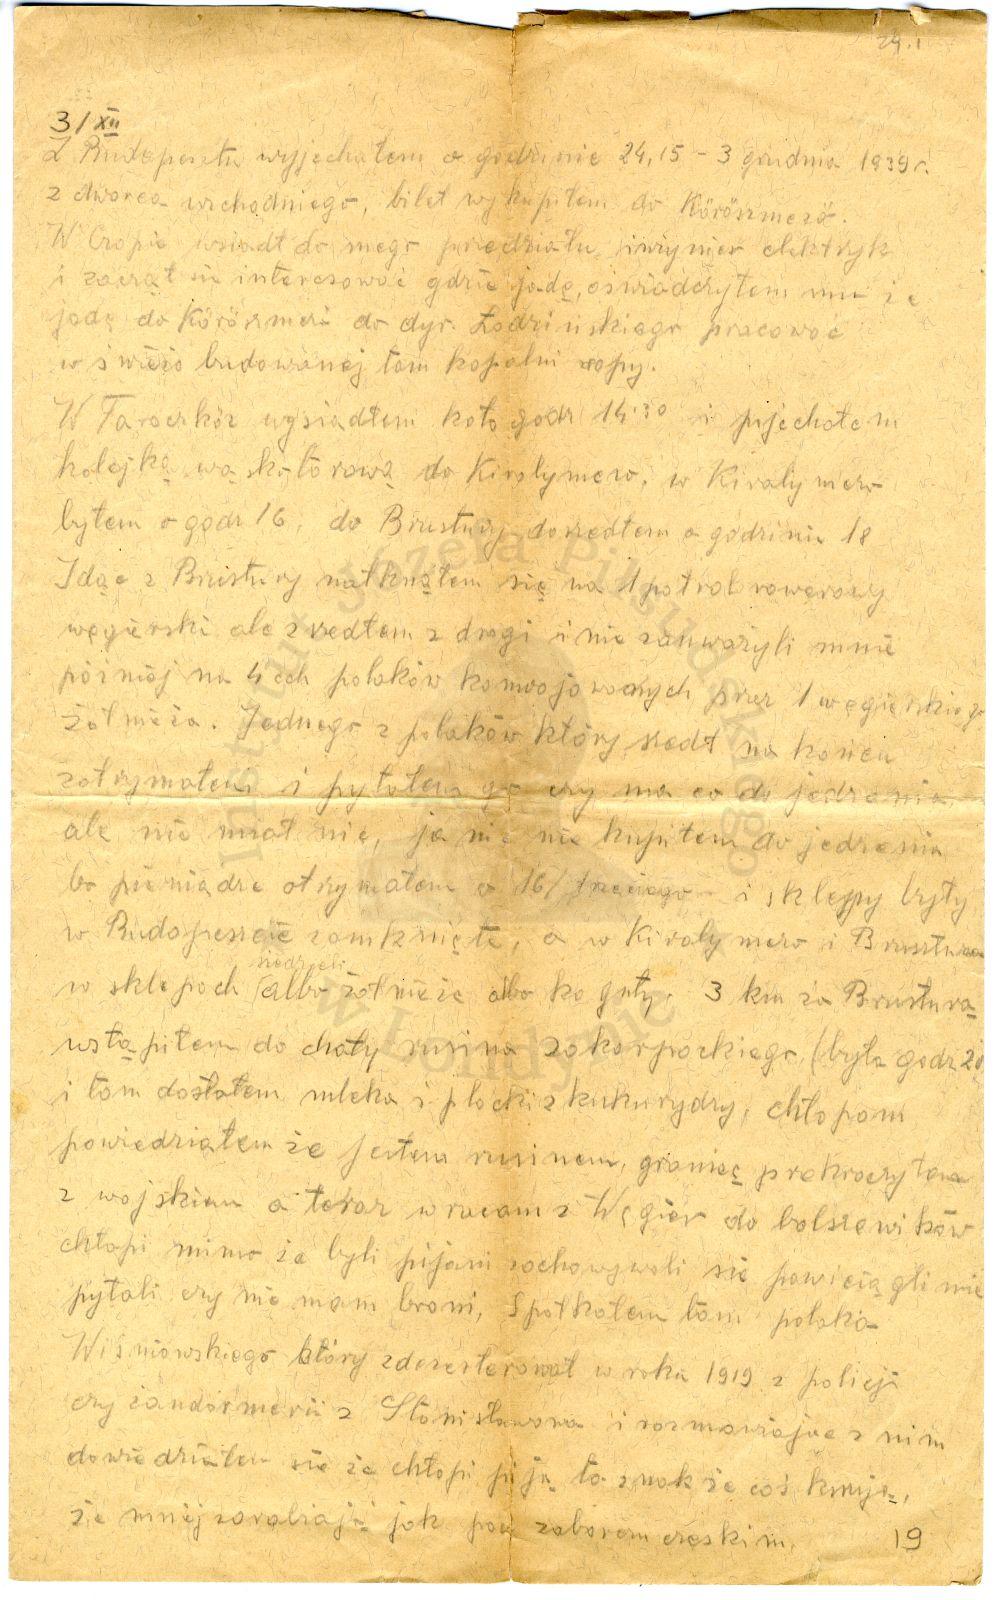 24.I
3/XII
Z Budapesztu wyjechałem o godzinie 24,15 – 3 grudnia 1939 r.
z dworca wschodniego, bilet wykupiłem do Köröszmező.
W Czopie wsiadł do mego przedziału inżynier elektryk
i zaczął się interesować gdzie jadę, oświadczyłem mu że
jadę do Köröszmezö do dyr. Łodzińskiego pracować
w świeżo budowanej tam kopalni ropy.
W Taraczköz wysiadłem koło godz 14.30 i pojechałem
kolejką wąskotorową do Kiralymezo, w Kiralymezo
byłem o godz 16, do Brustury doszedłem o godzinie 18
Idąc z Brustury natknąłem się na 1 patrol rowerowy
węgierski ale zszedłem z drogi i nie zauważyli mnie
później na 4ech polaków konwojowanych przez 1 węgierskiego
żołnieża. Jednego z polaków który szedł na końcu
zatrzymałem i pytałem go czy ma co do jedzenia
ale nie miał nic, ja nic nie kupiłem do jedzenia
bo pieniądze otrzymałem o 16/ i sklepy były
w Budapeszcie zamknięte, a w Kiralymezo i Brustura
w sklepach siedzieli albo żołnieże albo koguty. 3 km za Brusturą
wstąpiłem do chaty rusina zakarpackiego (była godz 20)
i tam dostałem mleka i placki z kukurydzy, chłopom
powiedziałem że jestem rusinem, granicę prekroczyłem
z wojskiem a teraz wracam z Węgier do bolszewików
chłopi mimo że byli pijani zachowywali się powściągliwie
pytali czy nie mam broni, Spotkałem tam polaka
Wiśniowskiego który zdezerterował w roku 1919 z policji
czy żandarmerii z Stanisławowa i rozmawiając z nim
dowiedziałem się że chłopi piją to znak że coś knują,
że mniej zarabiają jak pod zaborem czeskim.
19
Instytut Józefa Piłsudskiego
w Londynie